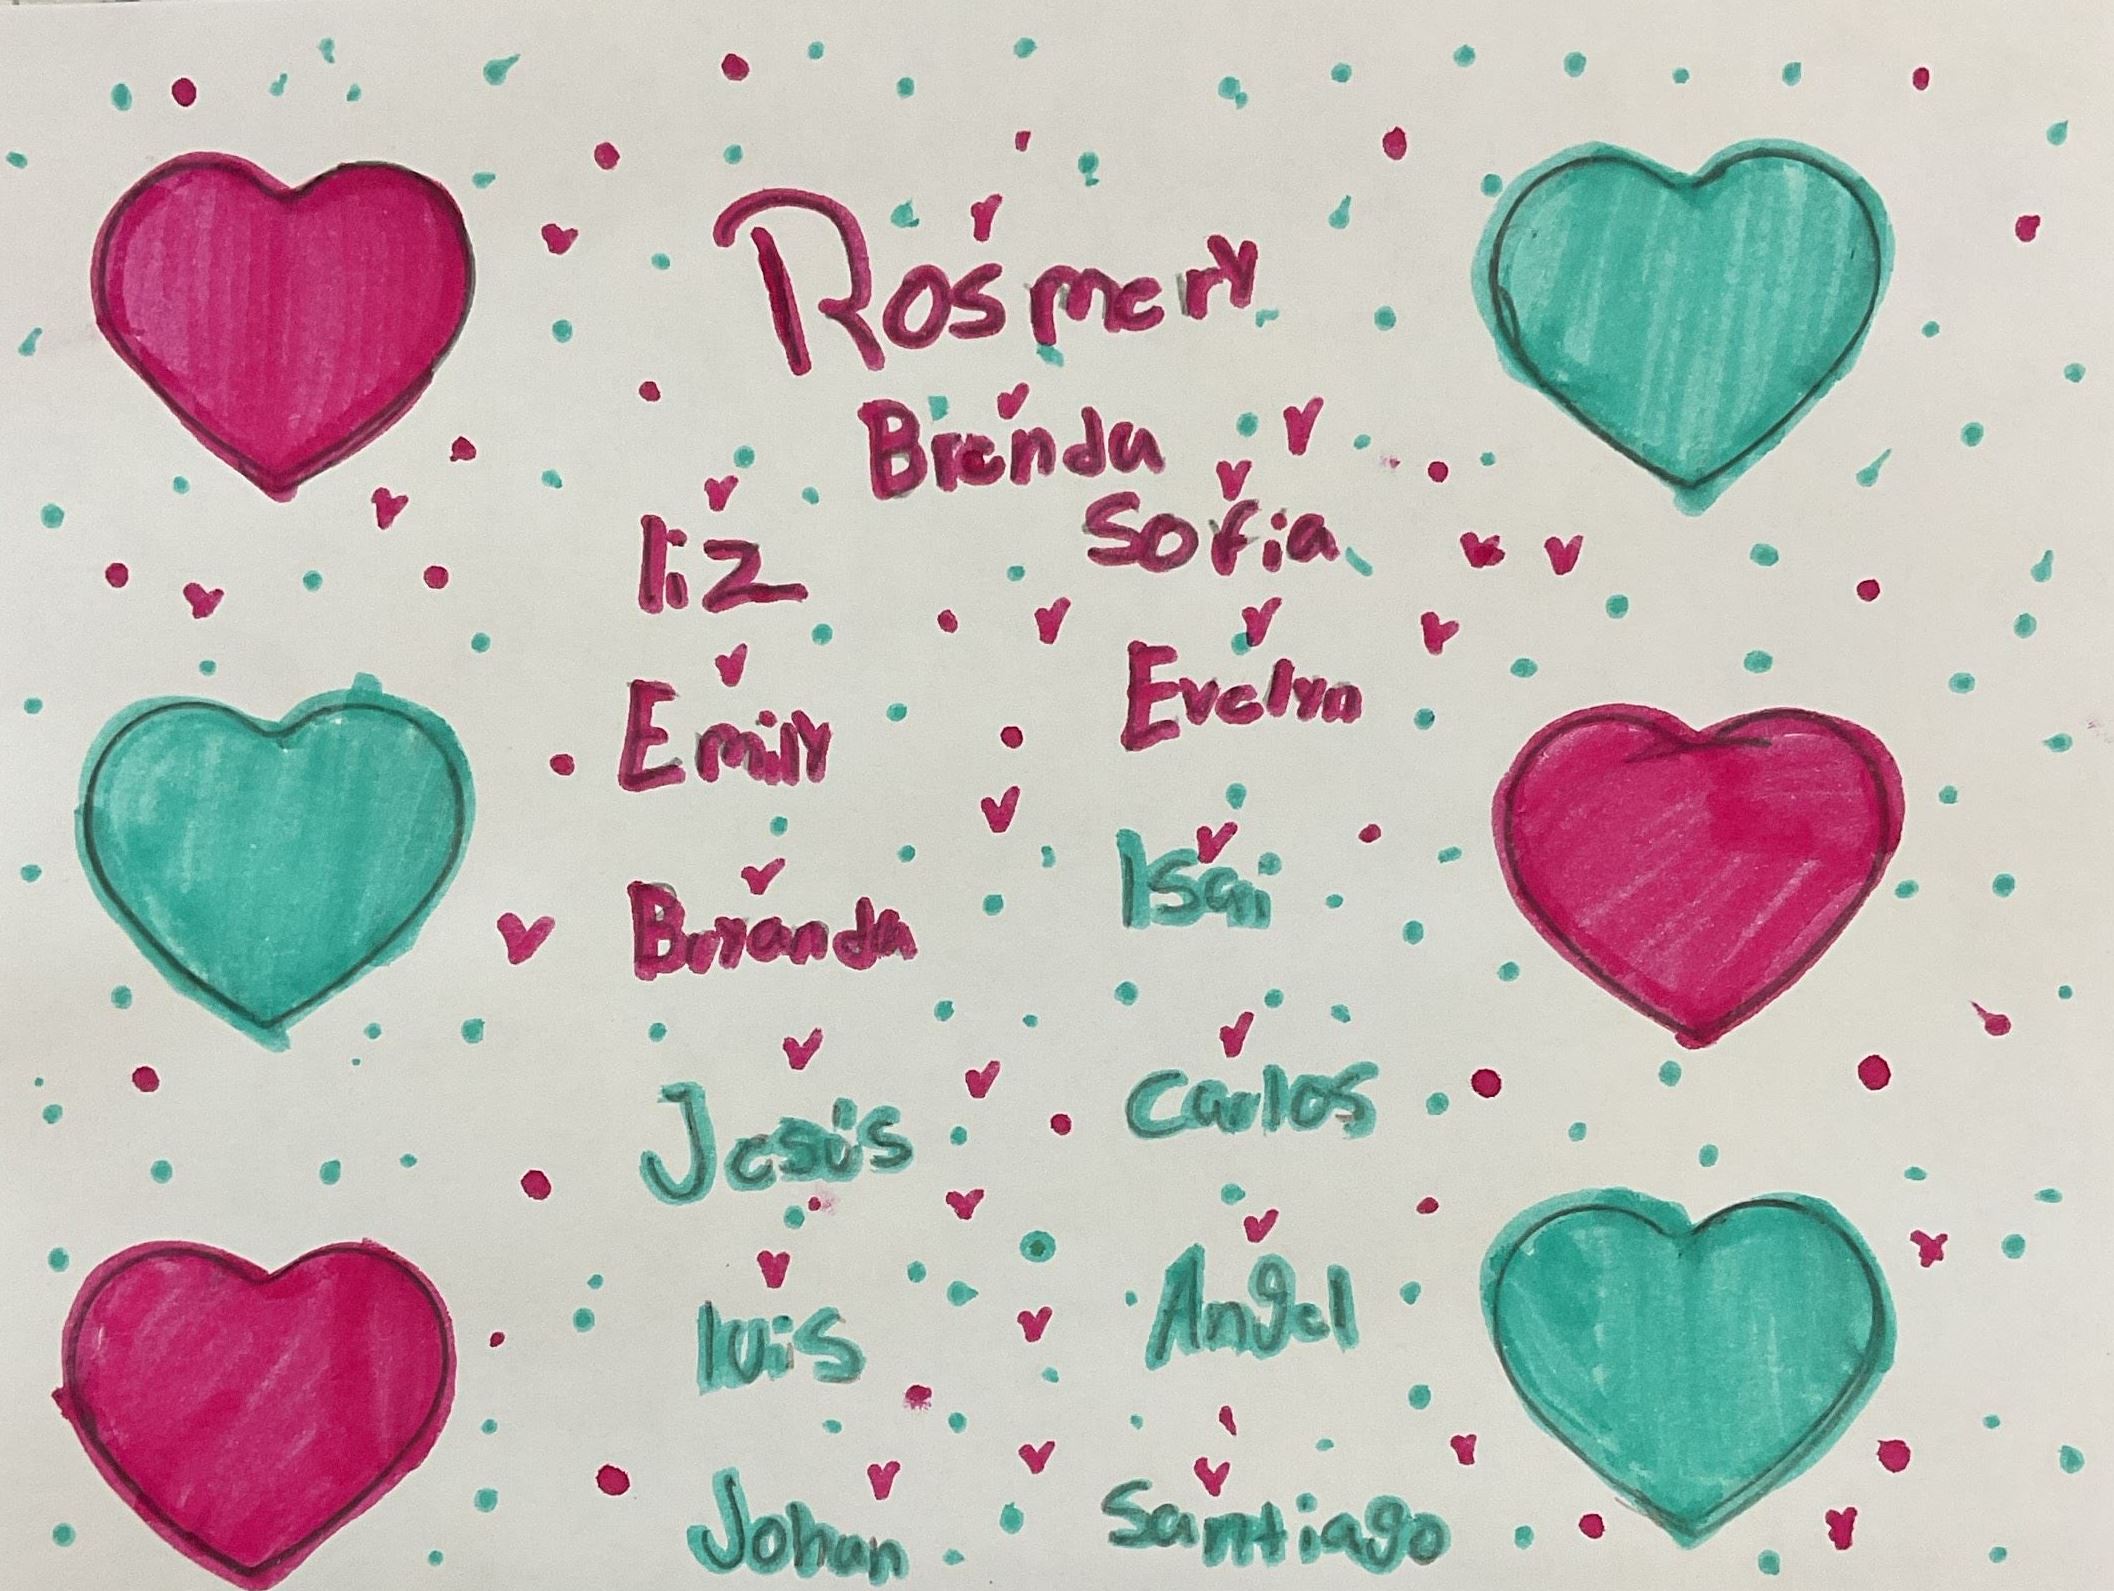 Rosmery
Brenda
liz
Sofia
Emily
Evelyn
Isai
Jesús
Carlos
luis
Angel
Johan
Santiago